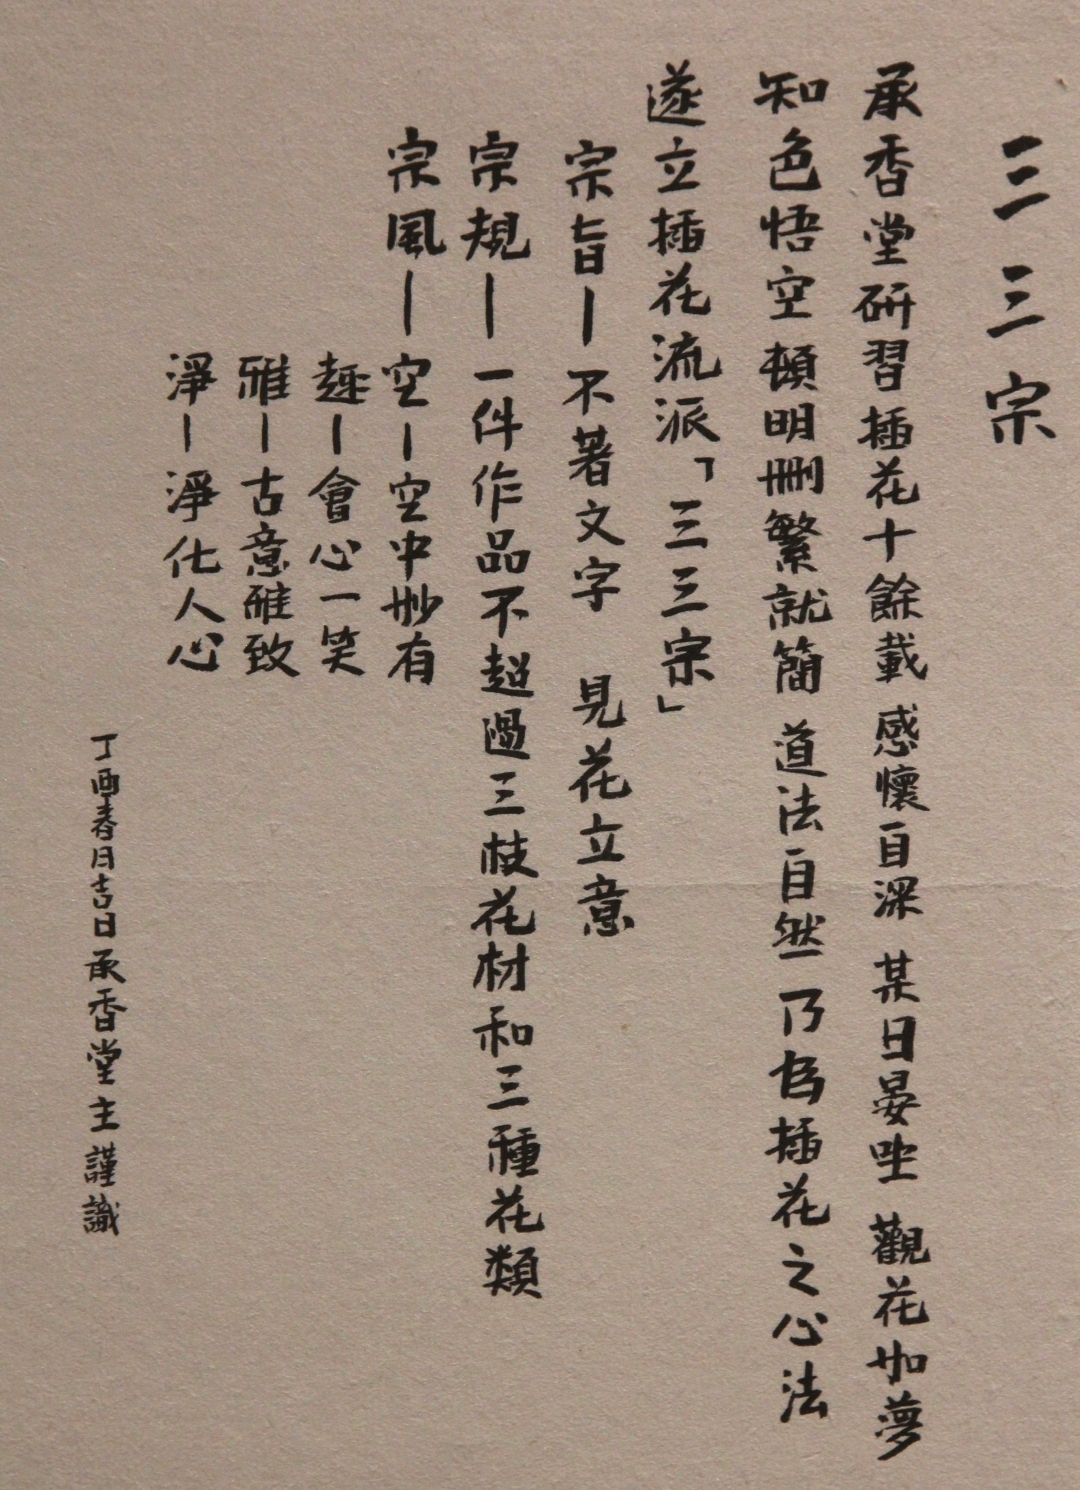 三三宗
承香堂研習插花十餘載 感懷自深 某日晏坐 觀花如夢
知色悟空 頓明刪繁就簡 道法自然 乃為插花之心法
遂立插花流派「三三宗」
宗旨—不著文字 見花立意
宗規—一件作品不超過三枝花材和三種花類
宗風—空—空中妙有
趣—會心一笑
雅—古意雅致
淨—淨化人心
丁酉春月吉日承香堂主謹識